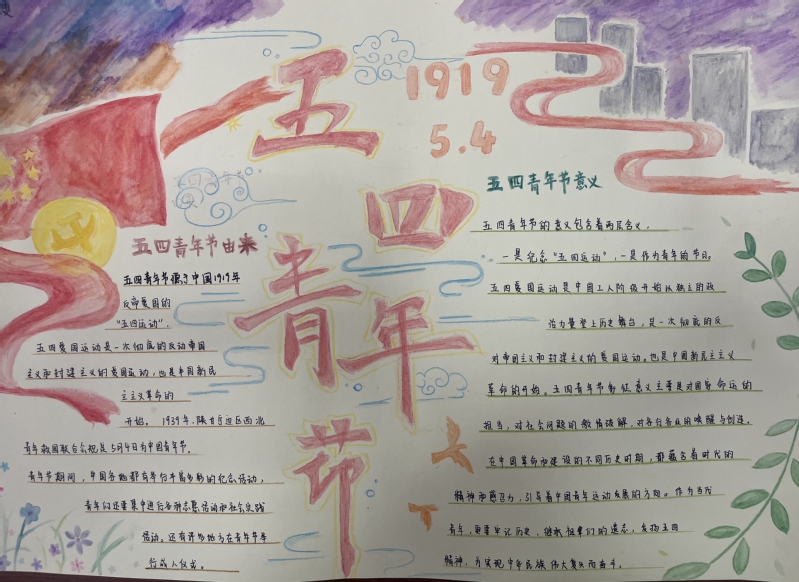 五四青年节
1919
5.4
五四青年节由来
五四青年节源于中国1919年
反帝爱国的
“五四运动”，
五四爱国运动是一次彻底的反动帝国
主义和封建主义的爱国运动，也是中国新民
主主义革命的
开始。1939年，陕甘宁边区西北
青年救国联合会规定5月4日为中国青年节。
青年节期间，中国各地都有举行丰富多彩的纪念活动，
青年们还要集中进行各种志愿活动和社会实践
活动。还有许多地方在青年节举
行成人仪式。
五四青年节意义
五四青年节的意义包含着两层含义，
一是纪念“五四运动”，一是作为青年的节日。
五四爱国运动是中国工人阶级开始以独立的政
治力量登上历史舞台，是一次彻底的反
对帝国主义和封建主义的爱国运动。也是中国新民主主义
革命的开始。五四青年节象征意义主要是对国革命运的
担当，对社会问题的敏情破解，对各行各业的唤醒与创造。
在中国革命和建设的不同历史时期，都蕴含着时代的
精神和感召力，引导着中国青年运动发展的方向。作为当代
青年，更要牢记历史，继承祖辈们的遗志，发扬五四
精神，为实现中华民族伟大复兴而奋斗。